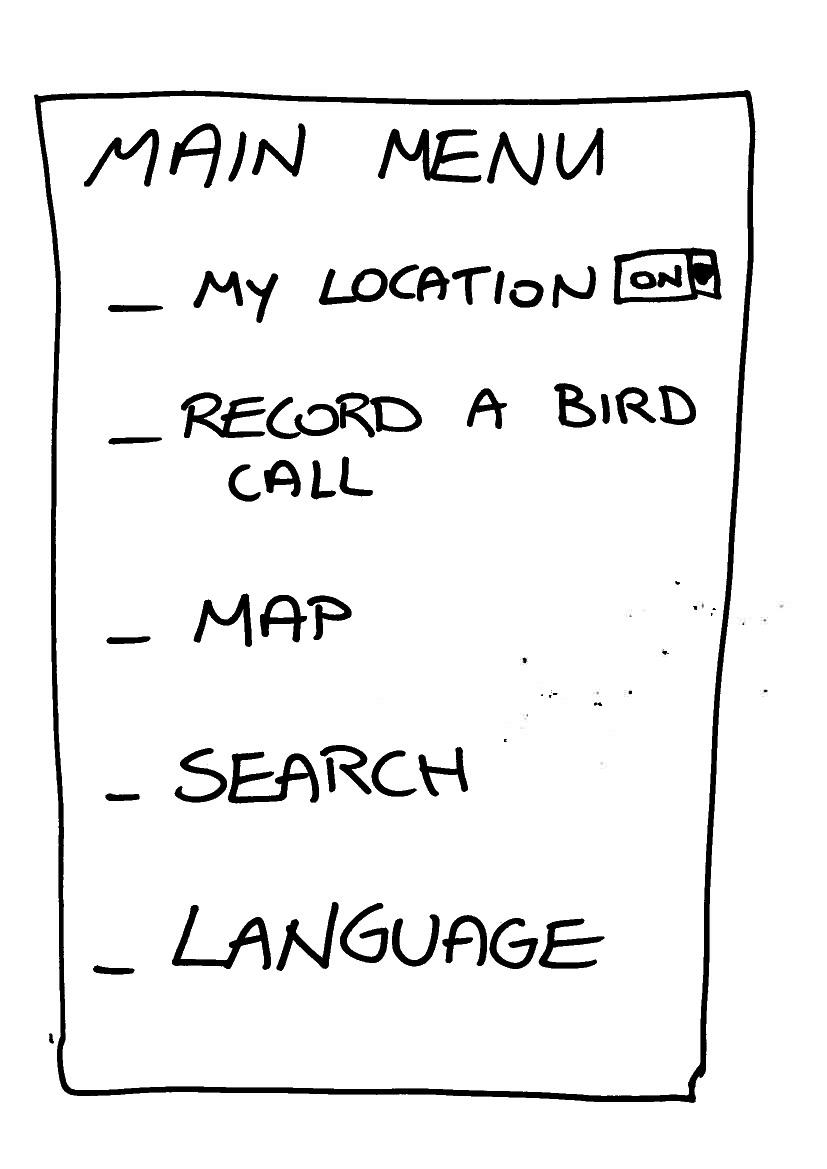 MAIN MENU
- MY LOCATION ON
- RECORD A BIRD
CALL
- MAP
- SEARCH
- LANGUAGE